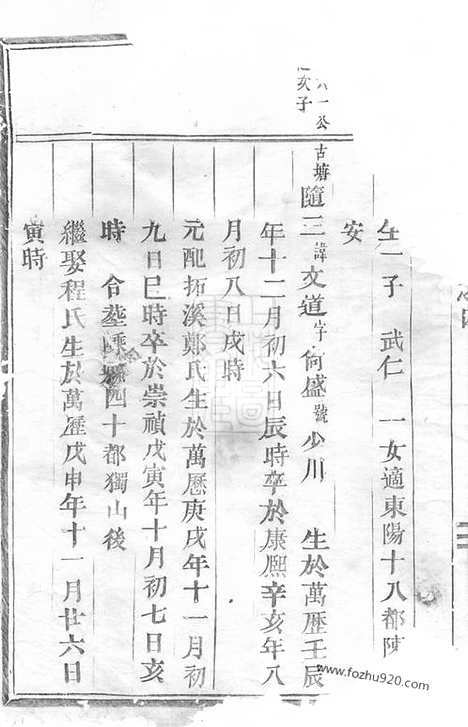 生一子 武仁 一女適東陽十八都陳
安
六一公
亥子
古塘
隨三諱文道字尙盛號少川 生於萬歷壬辰
年十二月初六日辰時卒於康熙辛亥年八
月初八日戌時
元配拓溪鄭氏生於萬歷庚戌年十一月初
九日巳時卒於崇禎戊寅年十月初七日亥
時 合塟 四十都獨山後
繼娶程氏生於萬歷戊申年十一月廿六日
寅時
www.fozhu920.com